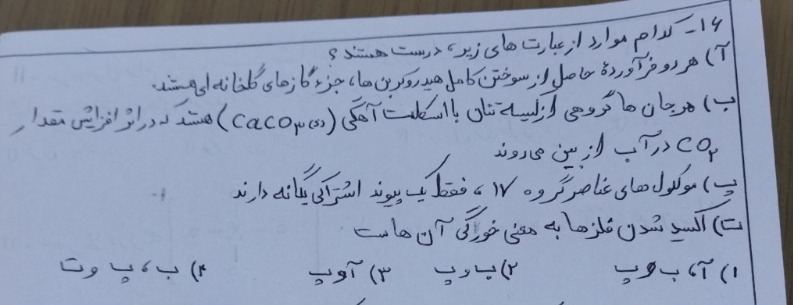 ۱۶- کدام موارد از عبارت های زیر، درست هستند؟
آ) هر دو فرآوردهٔ حاصل از سوختن کامل هیدروکربن ها، جزء گازهای گلخانه ای هستند.
ب) مرجان ها گروهی از کیسه تنان با اسکلت آهکی (CaCO۳(s)) هستند که در اثر افزایش مقدار
CO۲ در آب از بین می روند
پ) مولکول های عناصر گروه ۱۷، فقط یک پیوند اشتراکی یگانه دارند
ت) اکسید شدن فلزها به معنی خوردگی آن هاست
۱) آ، ب و پ ۲) ب و پ ۳) آ و پ ۴) ب، پ و ت